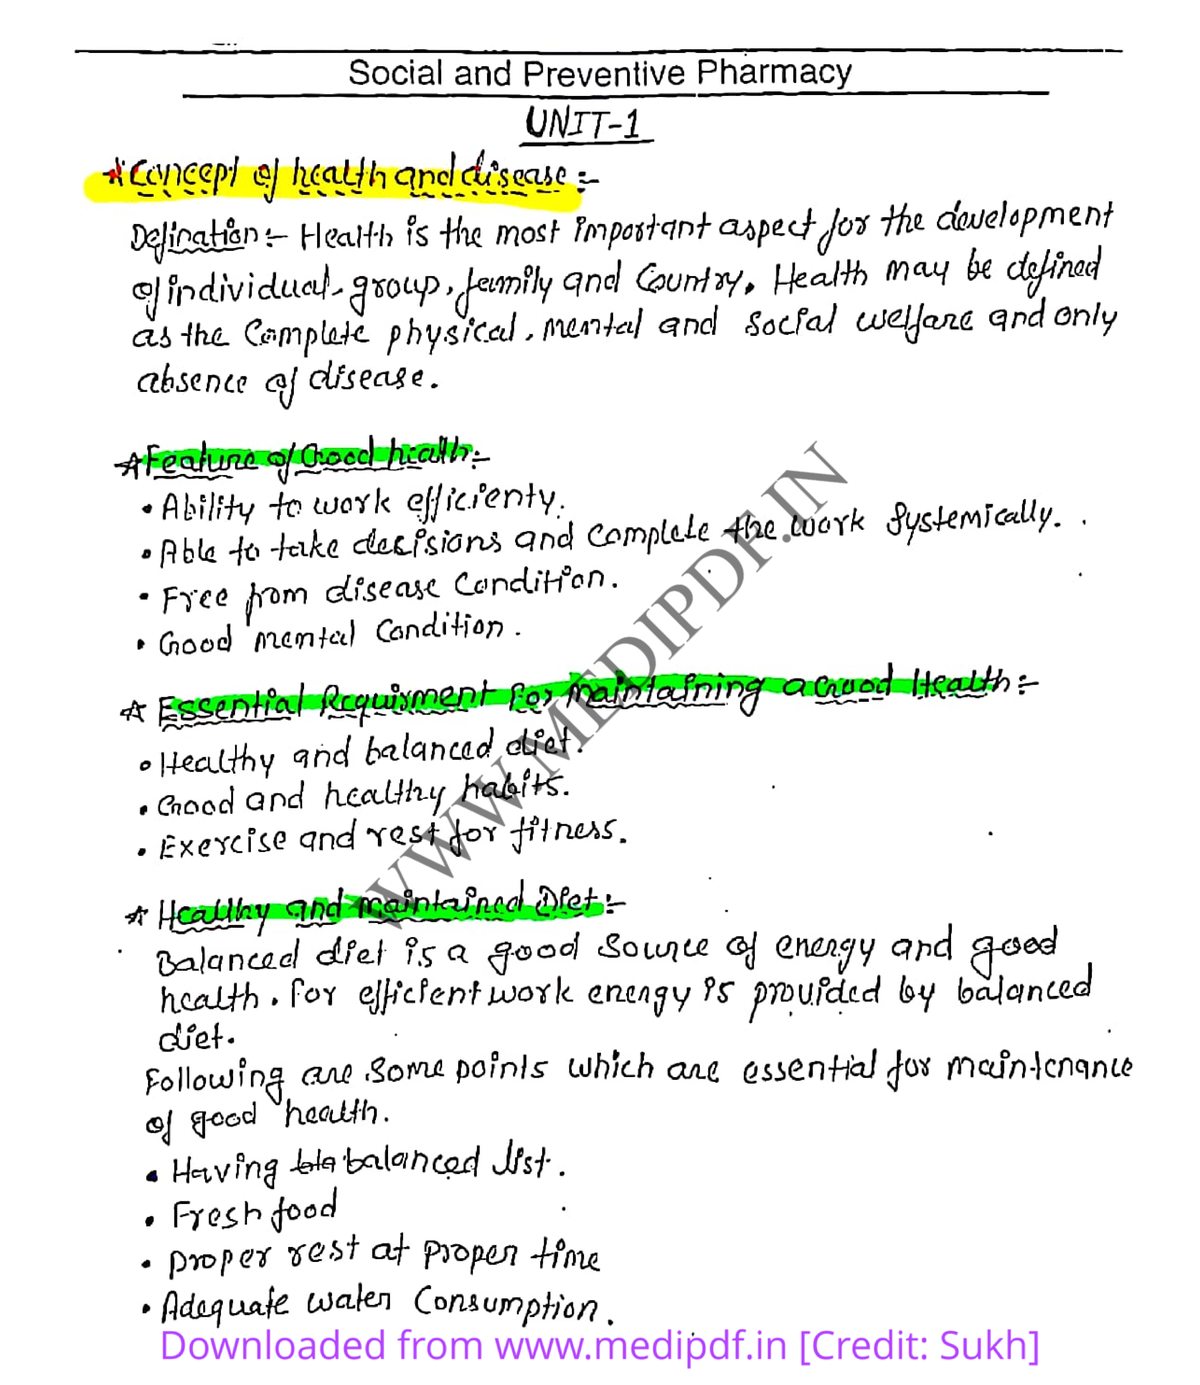 Social and Preventive Pharmacy
UNIT-1
* Concept of health and disease :-
Defination :- Health is the most important aspect for the development
of individual, group, family and Country. Health may be defined
as the Complete physical, mental and social welfare and only
absence of disease.
* Feature of Good hialth :-
• Ability to work efficienty.
• Able to take decisions and complete the work Systemically.
• Free from disease Condition.
• Good mental Condition.
* Essential Requirment for Maintaining a Good Health :-
• Healthy and balanced diet.
• Good and healthy habits.
• Exercise and rest for fitness.
* Healthy and maintained Diet :-
Balanced diet is a good source of energy and good
health. For efficient work energy is provided by balanced
diet.
Following are some points which are essential for maintenance
of good health.
• Having bla balanced list.
• Fresh food
• proper rest at proper time
• Adequate water Consumption.
WWW.MEDIPDF.IN
Downloaded from www.medipdf.in [Credit: Sukh]